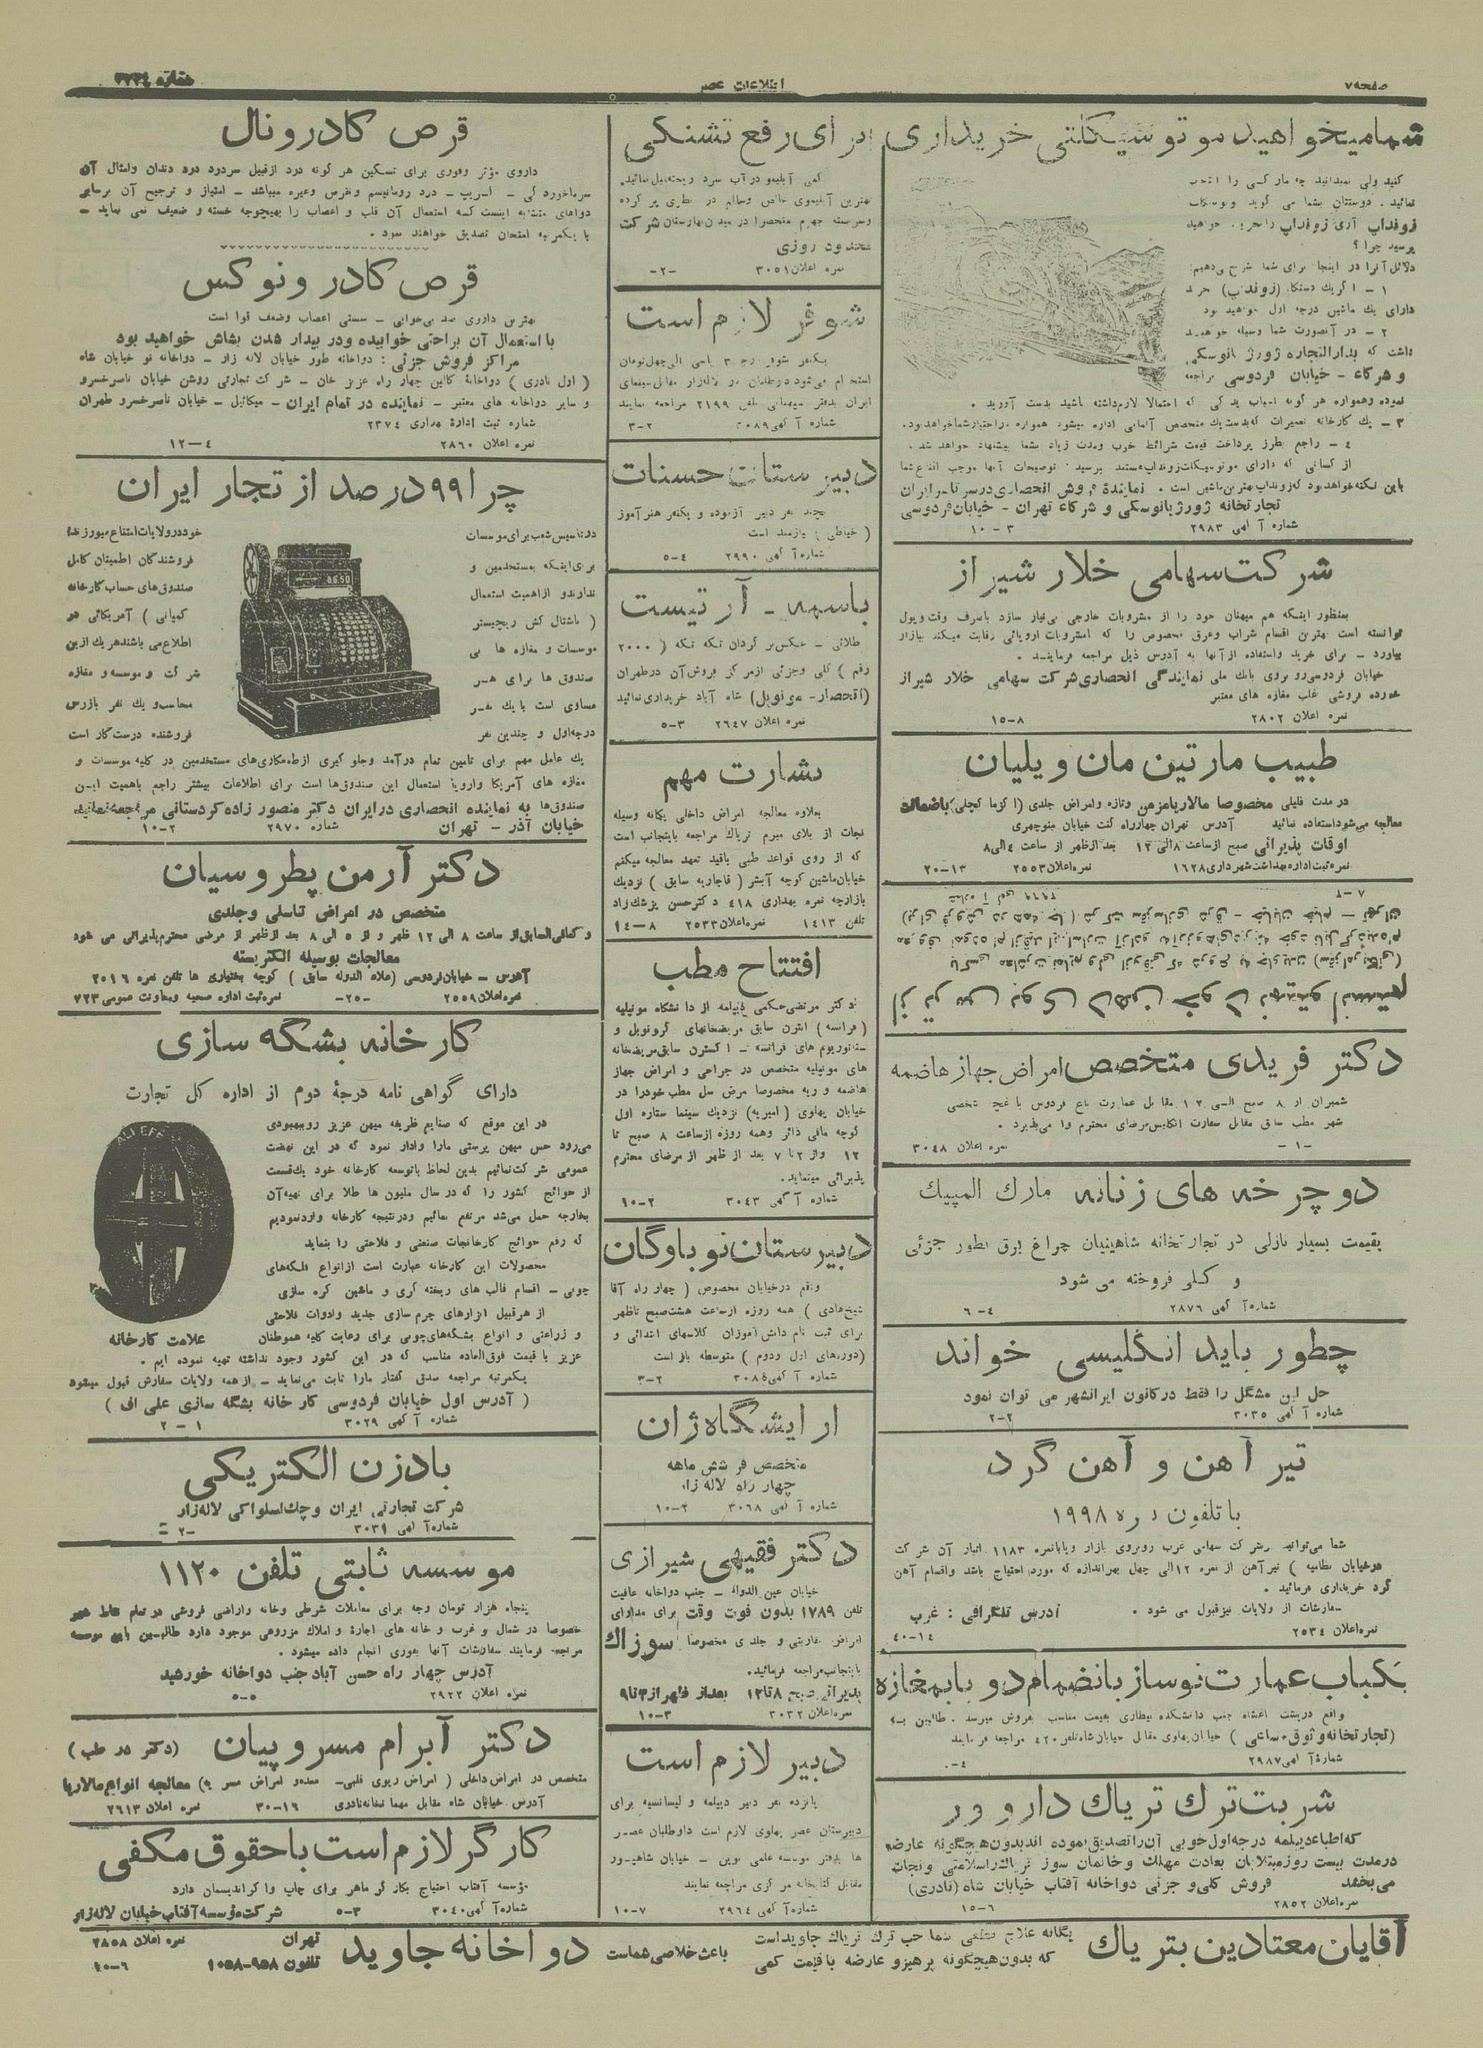 صفحه ۷
اطلاعات عصر
شماره
شما میخواهید موتوسیکلتی خریداری
کنید ولی نمیدانید چه مارکی را انتخاب
نمائید. دوستتان بشما می گوید
زونداپ آری زونداپ را بخرید. خواهید
پرسید چرا؟
دلائل آنرا در اینجا برای شما شرح میدهیم:
۱ - اگر یک دستگاه (زونداپ) خرید
دارای یک ماشین درجه اول خواهید بود
۲ - در آنصورت شما وسیله خواهید
داشت که بدارالتجاره ژورژ بانوسکی
و شرکاء - خیابان فردوسی مراجعه
نموده وهمواره هر گونه اسباب یدکی که احتمالا لازم داشته باشید بدست آورید.
۳ - یک کارخانه تعمیرات که بدست یک متخصص آلمانی اداره میشود همواره در اختیار شما خواهد بود.
۴ - راجع بطرز پرداخت قیمت شرائط خوب ومدت زیاد بشما پیشنهاد خواهد شد.
از کسانی که دارای موتوسیکلت زونداپ هستند بپرسید. توضیحات آنها موجب اقناع شما
باین نکته خواهد بود که زونداپ بهترین ماشین است. نماینده فروش انحصاری در سرتاسر ایران
تجارتخانه ژورژ بانوسکی و شرکاء تهران - خیابان فردوسی
شماره آگهی ۲۹۸۳ ۳-۱۰
شرکت سهامی خلار شیراز
بمنظور اینکه هم میهنان خود را از مشروبات خارجی بی نیاز سازد باصرف وقت وپول
توانسته است بهترین اقسام شراب وعرق مخصوص را که بامشروبات اروپائی رقابت میکند ببازار
بیاورد - برای خرید واستفاده از آنها به آدرس ذیل مراجعه فرمایند.
خیابان فردوسی روبروی بانک ملی نمایندگی انحصاری شرکت سهامی خلار شیراز
خورده فروشی اغلب مغازه های معتبر
نمره اعلان ۲۸۰۲ ۸-۱۵
طبیب مارتین مانویلیان
در مدت قلیلی مخصوصا مالاریا مزمن وتازه وامراض جلدی (اکزما کچلی) باضمانت
معالجه می شود استفاده نمائید آدرس تهران چهارراه کنت خیابان منوچهری
اوقات پذیرائی صبح ازساعت ۸ الی ۱۲ بعد ازظهر از ساعت ۴ الی ۸
نمره ثبت اداره بهداشت شهرداری ۱۶۲۸ نمره اعلان ۲۵۵۳ ۱۳-۲۰
دکتر فریدی متخصص امراض جهاز هاضمه
شمیران از ۸ صبح الی ۱۲ مقابل عمارت باغ فردوس باغچه شخصی
شهر مطب سابق مقابل سفارت انگلیس مرضای محترم را می پذیرد.
نمره اعلان ۳۰۴۸ -۱-
دوچرخه های زنانه مارک المپیک
بقیمت بسیار نازلی در تجارتخانه شاهینیان چراغ برق بطور جزئی
و کلی فروخته می شود
شماره آگهی ۲۸۷۶ ۴-۶
چطور باید انگلیسی خواند
حل این مشکل را فقط در کانون ایرانشهر می توان نمود
شماره آگهی ۳۰۳۵ ۲-۲
تیر آهن و آهن گرد
با تلفون نمره ۱۹۹۸
شما می توانید بشرکت سهامی غرب روبروی بازار ویا بانمره ۱۱۸۳ انبار آن شرکت
در خیابان نظامیه) تیر آهن از نمره ۱۲ الی چهل بهر اندازه که مورد احتیاج باشد واقسام آهن
گرد خریداری فرمائید.
سفارشات از ولایات نیز قبول می شود. آدرس تلگرافی: غرب
نمره اعلان ۲۵۳۴ ۱۴-۴۰
یکباب عمارت نوساز بانضمام دو باب مغازه
واقع دربشت جنب دانشکده بیطاری بقیمت مناسب بفروش میرسد. طالبین به
(تجارتخانه وثوق ساعی) خیابان پهلوی مقابل خیابان شاه تلفن ۴۲۰ مراجعه فرمایند
شماره آگهی ۲۹۸۷ ۴-
شربت ترک تریاک دارو ور
که اطباء دیپلمه درجه اول خوبی آن را تصدیق نموده اند بدون هیچگونه عارضه
در مدت بیست روز مبتلایان بعادت مهلک وخانمان سوز تریاک را سلامتی ونجات
می بخشد فروش کلی و جزئی دواخانه آفتاب خیابان شاه (نادری)
نمره اعلان ۲۸۵۲ ۶-۱۵
برای رفع تشنگی
کمی آبلیمو در آب سرد ریخته میل نمائید.
بهترین آبلیموی خالص وسالم در بطری پر کرده
وسربسته جهرم منحصرا در میدان بهارستان شرکت
محدود روزی
نمره اعلان ۳۰۵۱ -۲-
شوفر لازم است
یکنفر شوفر درجه ۳ باسی الی چهل تومان
استخدام می شود داوطلبان در لاله زار مقابل سینمای
ایران بدفتر تلفن ۲۱۹۹ مراجعه نمایند
شماره آگهی ۳۰۸۹ ۲-۳
دبیرستان حسنات
بچند نفر دبیر آزموده و یکنفر هنرآموز
(خیاطی) نیازمند است
شماره آگهی ۲۹۹۰ ۴-۵
باسمه - آرتیست
طلائی - عکس بر گردان تکه تکه (۲۰۰۰
رقم) کلی وجزئی ازمرکز فروش آن درطهران
(انحصار - ) شاه آباد خریداری نمائید
نمره اعلان ۲۶۴۷ ۳-۵
بشارت مهم
بعلاوه معالجه امراض داخلی یگانه وسیله
نجات از بلای مبرم تریاک مراجعه باینجانب است
که از روی قواعد طبی باقید تعهد معالجه میکنم
خیابان ماشین کوچه آبشر (قاجاریه سابق) نزدیک
بازارچه نمره بهداری ۴۱۸ دکتر حسن پزشک زاد
تلفن ۱۴۱۳ نمره اعلان ۲۵۳۳ ۸-۱۴
افتتاح مطب
دکتر مرتضی حکمی دیپلمه از دانشگاه مونپلیه
(فرانسه) انترن سابق مریضخانهای گرونوبل و
سناتوریوم های فرانسه - اکسترن سابق مریضخانه
های مونپلیه متخصص در جراحی و امراض جهاز
هاضمه و ریه مخصوصا مرض سل مطب خودرا در
خیابان پهلوی (امیریه) نزدیک سینما ستاره اول
کوچه مافی دائر وهمه روزه ازساعت ۸ صبح تا
۱۲ واز ۲ تا ۷ بعد از ظهر از مرضای محترم
پذیرائی مینماید.
شماره آگهی ۳۰۴۳ ۲-۱۰
دبیرستان نوباوگان
واقع درخیابان مخصوص (چهار راه آقا
شیخ هادی) همه روزه ازساعت هشت صبح تاظهر
برای ثبت نام دانش آموزان کلاسهای ابتدائی و
(دوره های اول ودوم) متوسطه باز است
شماره آگهی ۳۰۸۵ ۲-۳
آرایشگاه ژان
متخصص فر شش ماهه
چهار راه لاله زار
شماره آگهی ۳۰۶۸ ۲-۱۰
دکتر فقیهی شیرازی
خیابان عین الدوله - جنب دواخانه عافیت
تلفن ۱۷۸۹ بدون فوت وقت برای مداوای
امراض مقاربتی و جلدی مخصوصا سوزاک
باینجانب مراجعه فرمائید.
پذیرائی صبح ۸ تا ۱۲ بعد از ظهر از ۳ تا ۹
نمره اعلان ۳۰۳۲ ۳-۱۰
دبیر لازم است
پانزده نفر دبیر دیپلمه و لیسانسیه برای
دبیرستان عصر پهلوی لازم است داوطلبان عصر
ها بدفتر موسسه علمی نوین - خیابان شاهپور
مقابل کتابخانه مرکزی مراجعه نمایند
شماره آگهی ۲۹۶۴ ۷-۱۰
قرص کادرونال
داروی مؤثر وفوری برای تسکین هر گونه درد ازقبیل سردرد درد دندان وامثال آن
سرماخوردگی - گریپ - درد روماتیسم ونقرس وغیره میباشد - امتیاز و ترجیح آن برسایر
دواهای مشابه اینست که استعمال آن قلب و اعصاب را بهیچوجه خسته و ضعیف نمی نماید -
با یکمرتبه امتحان تصدیق خواهند نمود.
قرص کادرونوکس
بهترین داروی ضد بی خوابی - سستی اعصاب وضعف قوا است
با استعمال آن براحتی خوابیده ودر بیدار شدن بشاش خواهید بود
مراکز فروش جزئی: دواخانه طور خیابان لاله زار - دواخانه نو خیابان شاه
(اول نادری) دواخانه کالین چهار راه عزیز خان - شرکت تجارتی روشن خیابان ناصرخسرو
و سایر دواخانه های معتبر - نماینده در تمام ایران - میکائیل - خیابان ناصرخسرو طهران
شماره ثبت اداره بهداری ۲۳۷۴
نمره اعلان ۲۸۶۰ ۴-۱۲
چرا ۹۹ درصد از تجار ایران
درتاسیس شعب برای موسسات
برای اینکه بمستخدمین و
ندارند و ازاهمیت استعمال
(ناشنال کش ریجیستر
موسسات و مغازه ها بی
صندوق ها برای هر
مساوی است با یک نفر
درجه اول و چندین نفر
خود در ولایات امتناع میورزند؟
فروشندگان اطمینان کامل
صندوق های حساب کارخانه
کمپانی) آمریکائی در
اطلاع می باشند هریک ازین
شرکت و موسسه و مغازه
محاسب و یک نفر بازرس
فروشنده درست کار است
یک عامل مهم برای تامین تمام درآمد وجلو گیری ازطمعکاری های مستخدمین در کلیه موسسات و
مغازه های آمریکا واروپا استعمال این صندوق ها است برای اطلاعات بیشتر راجع باهمیت این
صندوق ها به نماینده انحصاری در ایران دکتر منصور زاده کردستانی مراجعه نمائید.
خیابان آذر - تهران شماره ۲۹۷۰ ۲-۱۰
دکتر آرمن پطروسیان
متخصص در امراض تناسلی وجلدی
و کمافی السابق از ساعت ۸ الی ۱۲ ظهر و از ۵ الی ۸ بعد ازظهر از مرضی محترم پذیرائی می شود
معالجات بوسیله الکتریسته
آدرس - خیابان فردوسی (علاء الدوله سابق) کوچه بختیاری ها تلفن نمره ۲۰۱۶
نمره اعلان ۲۵۵۹ -۲۵- نمره ثبت اداره صحیه ومعاونت عمومی ۷۲۳
کارخانه بشگه سازی
دارای گواهی نامه درجه دوم از اداره کل تجارت
ALI EFF
در این موقع که صنایع ظریفه میهن عزیز روببهبودی
می رود حس میهن پرستی مارا وادار نمود که در این نهضت
عمومی شرکت نمائیم بدین لحاظ باتوسعه کارخانه خود یک قسمت
از حوائج کشور را که در سال ملیون ها طلا برای تهیه آن
بخارجه حمل می شد مرتفع نمائیم ودرنتیجه کارخانه واردنمودیم
که رفع حوائج کارخانجات صنعتی و فلاحتی را بنماید
محصولات این کارخانه عبارت است ازانواع فلکه های
چوبی - اقسام قالب های ریخته گری و ماشین کره سازی
از هرقبیل ابزارهای چرم سازی جدید وادوات فلاحتی
و زراعتی و انواع بشگه های چوبی برای رعایت کلیه هموطنان
علامت کارخانه
عزیز با قیمت فوق العاده مناسب که در این کشور وجود نداشته تهیه نموده ایم.
یکمرتبه مراجعه صدق گفتار مارا ثابت می نماید - از همه ولایات سفارش قبول میشود
(آدرس اول خیابان فردوسی کارخانه بشگه سازی علی اف)
شماره آگهی ۳۰۲۹ ۱-۲
بادزن الکتریکی
شرکت تجارتی ایران وچک اسلواکی لاله زار
شماره آگهی ۳۰۳۹ -۲
موسسه ثابتی تلفن ۱۱۲۰
پنجاه هزار تومان وجه برای معاملات شرطی وخانه واراضی فروشی در تمام نقاط شهر
خصوصا در شمال و غرب و خانه های اجاره و املاک مزروعی موجود دارد طالبین باین موسسه
مراجعه فرمایند سفارشات آنها بفوری انجام داده میشود.
آدرس چهار راه حسن آباد جنب دواخانه خورشید
نمره اعلان ۲۹۲۲ ۵-۵
دکتر آبرام مسروپیان (دکتر در طب)
متخصص در امراض داخلی (امراض ریوی قلبی - معده و امراض مسریه) معالجه انواع مالاریا
آدرس خیابان شاه مقابل مهمانخانه نادری ۱۶-۳۰ نمره اعلان ۲۶۱۳
کارگر لازم است با حقوق مکفی
مؤسسه آفتاب احتیاج بکارگر ماهر برای چاپ واگراندیسمان دارد
شماره آگهی ۳۰۴۰ ۳-۵ شرکت مؤسسه آفتاب خیابان لاله زار
آقایان معتادین بتریاک
یگانه علاج قطعی شما حب ترک تریاک جاوید است
که بدون هیچگونه پرهیز و عارضه با قیمت کمی
باعث خلاصی شماست
دواخانه جاوید
تهران
تلفون ۹۵۸-۱۰۵۸
نمره اعلان ۲۸۵۸
۶-۲۰